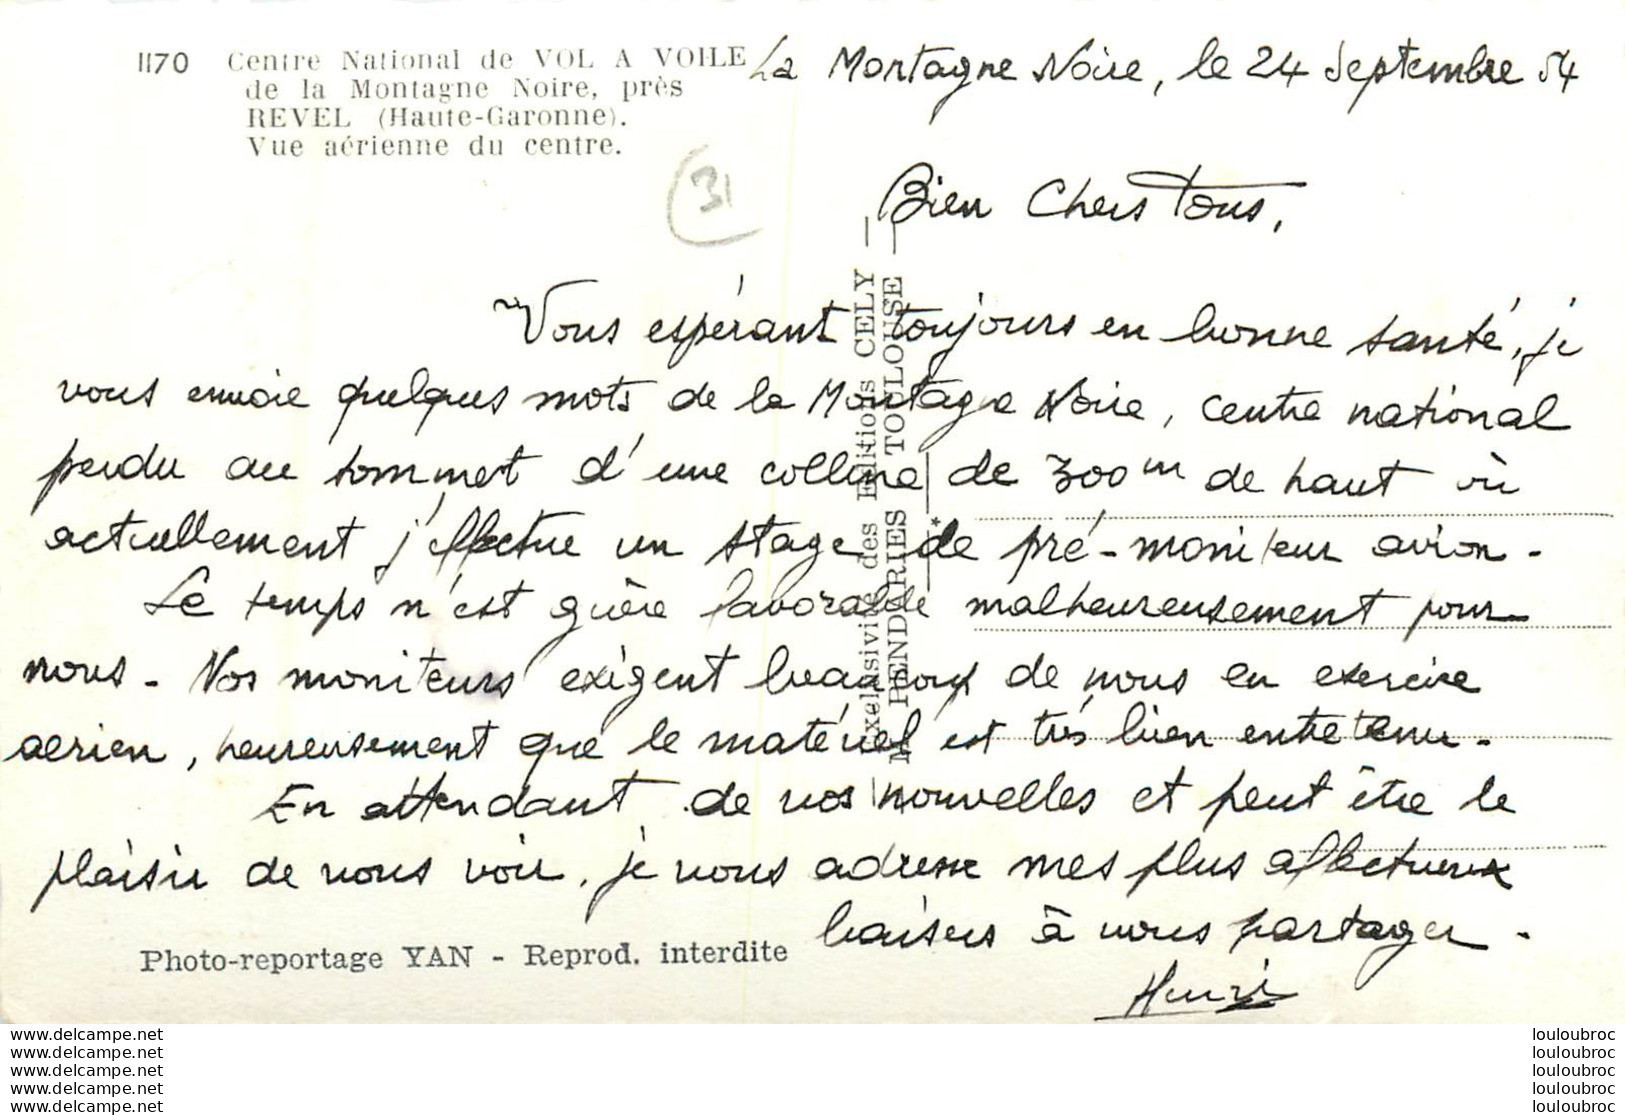 1170 Centre National de VOL A VOILE
de la Montagne Noire, près
REVEL (Haute-Garonne).
Vue aérienne du centre.
31
La Montagne Noire, le 24 Septembre 54
Bien Chers Tous,
Vous espérant toujours en bonne santé, je
vous envoie quelques mots de la Montagne Noire, centre national
perdu au sommet d'une colline de 300m de haut où
actuellement j'effectue un stage de pré-moniteur avion -
Le temps n'est guère favorable malheureusement pour
nous - Nos moniteurs exigent beaucoup de nous en exercice
aerien, heureusement que le matériel est très bien entretenu -
En attendant de vos nouvelles et peut être le
plaisir de vous voir, je vous adresse mes plus affectueux
baisers à vous partager -
Henri
Exclusivité des Editions CELY —
M. PENDARIES TOULOUSE —
*
Photo-reportage YAN - Reprod. interdite
www.delcampe.net louloubroc
www.delcampe.net louloubroc
www.delcampe.net louloubroc
www.delcampe.net louloubroc
www.delcampe.net louloubroc